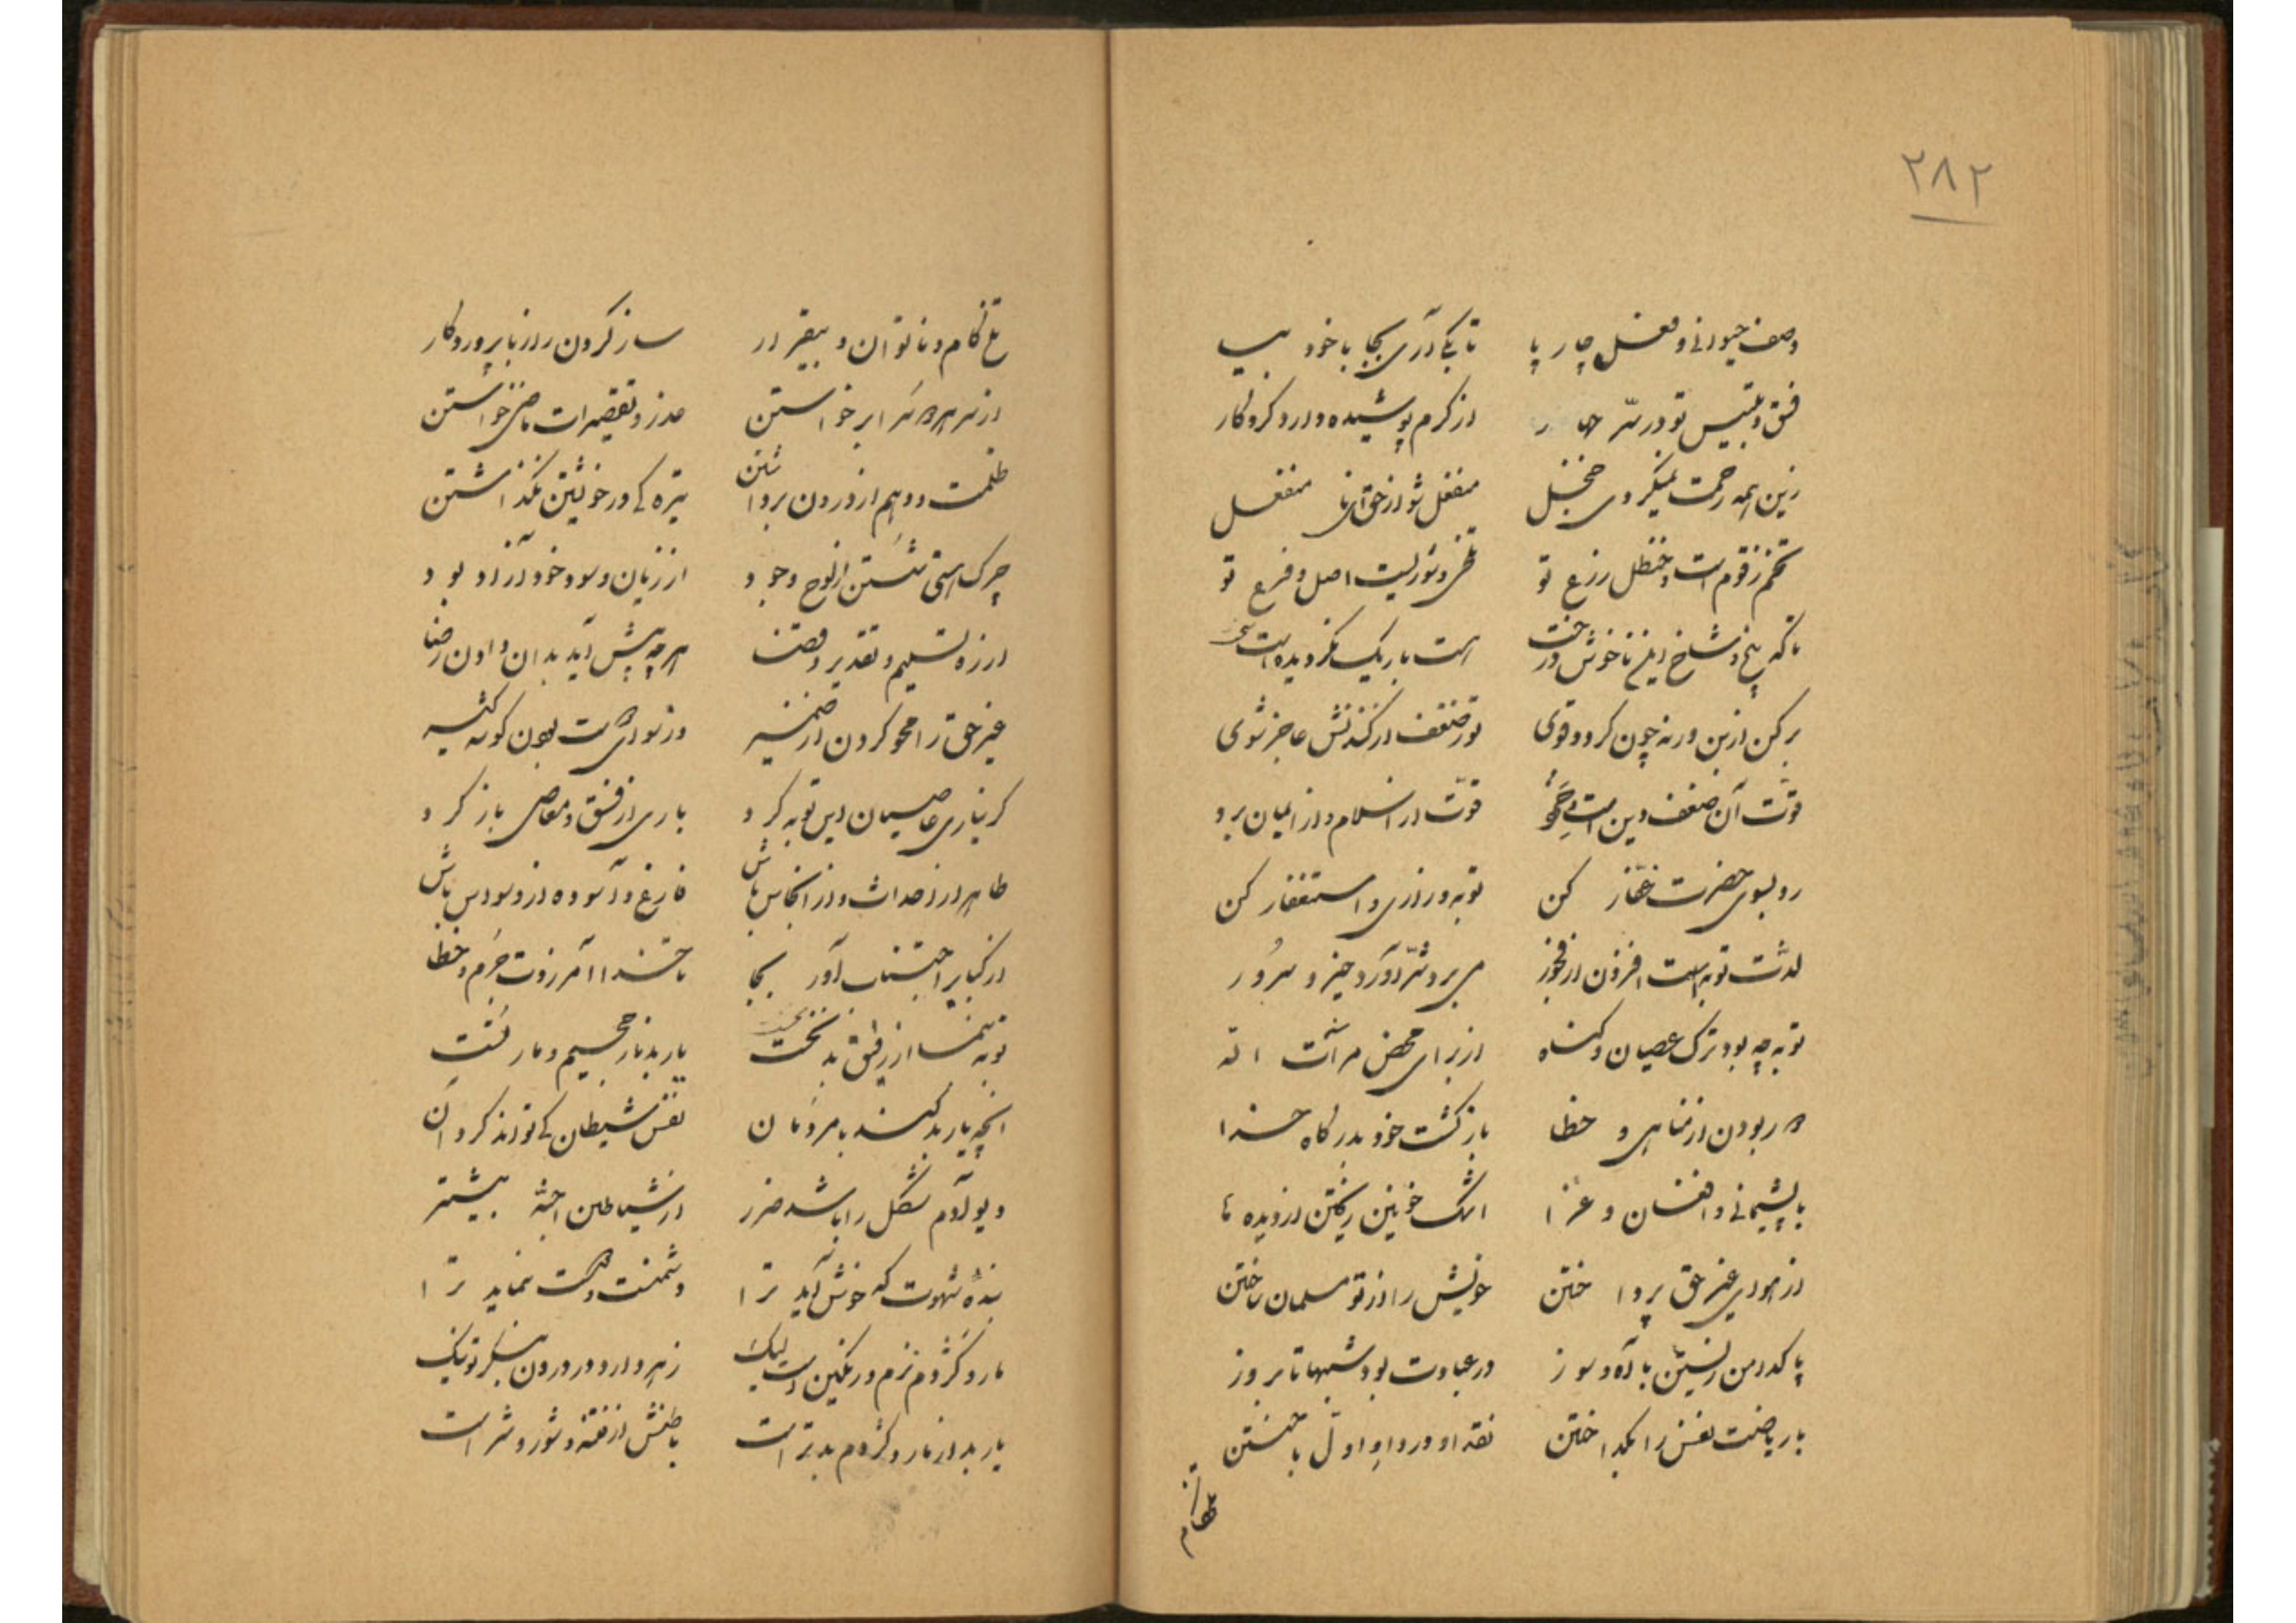 ۲۸۲
وصف حیوانی و فعل چارپا تا بکی آری بجا با خود بیا
فسق و تلبیس تو در سر جهار از کرم پوشیده دارد کردگار
زین همه رحمت نمیگردی خجل منفعل شو از حق ای نا منفعل
تخم زقوم است و حنظل زرع تو تلخی و شوریست اصل و فرع تو
تا که بیخ و شاخ این ناخوش درخت هست باریک نگردیده است سخت
برکن از بن ورنه چون گردد قوی تو ضعف از کندنش عاجز شوی
قوت آن ضعف دین است قوت از اسلام و از ایمان برد
رو بسوی حضرت غفار کن توبه و زاری و استغفار کن
لذت توبه است افزون از فجور می برد شر آورد خیر و سرور
توبه چه بود ترک عصیان و گناه از برای محض مرآت اله
دور بودن از مناهی و خطا بازگشت خود بدرگاه خدا
با پشیمانی و افغان و عزا اشک خونین ریختن از دیده ها
از هوای غیر حق پرداختن خویش را از نو مسلمان ساختن
پاکدامن زیستن با آه و سوز در عبادت بود شبها تا بروز
با ریاضت نفس را بگداختن نقد او در داو اول باختن
تلخ کام
تلخ کام و ناتوان و بیقرار ساز کردن راز با پروردگار
از سر هر دو سرا برخاستن عذر تقصیرات ماضی خواستن
ظلمت دوهم از درون برداشتن تیره کی در خویشتن نگذاشتن
چرک هستی شستن از لوح وجود از زیان و سود خود آزاد بود
از ره تسلیم و تقدیر و قضا هر چه پیش آید بدان دادن رضا
غیر حق را محو کردن از ضمیر وز سوای دوست بودن گوشه گیر
گر نیاری عاصیان این توبه کرد باری از فسق و معاصی باز گرد
طاهر از احداث و از انجاس باش فارغ و آسوده از وسواس باش
از کبایر اجتناب آور بجا تا خدا آمرزدت جرم و خطا
توبه بنما از رفیق بد نخست یار بد نار جحیم و مار تست
آنچه یار بد کند با مردمان نفس شیطان کی تواند کرد آن
دیو آدم شکل را باشد ضرر از شیاطین اجنه بیشتر
بنده شهوت که خوش آید ترا دشمنت و دوست نماید ترا
مار و کژدم نرم و رنگین است لیک زهر دارد در درون بنگر تو نیک
یار بد از مار و کژدم بدتر است باطنش از فتنه و شور و شر است